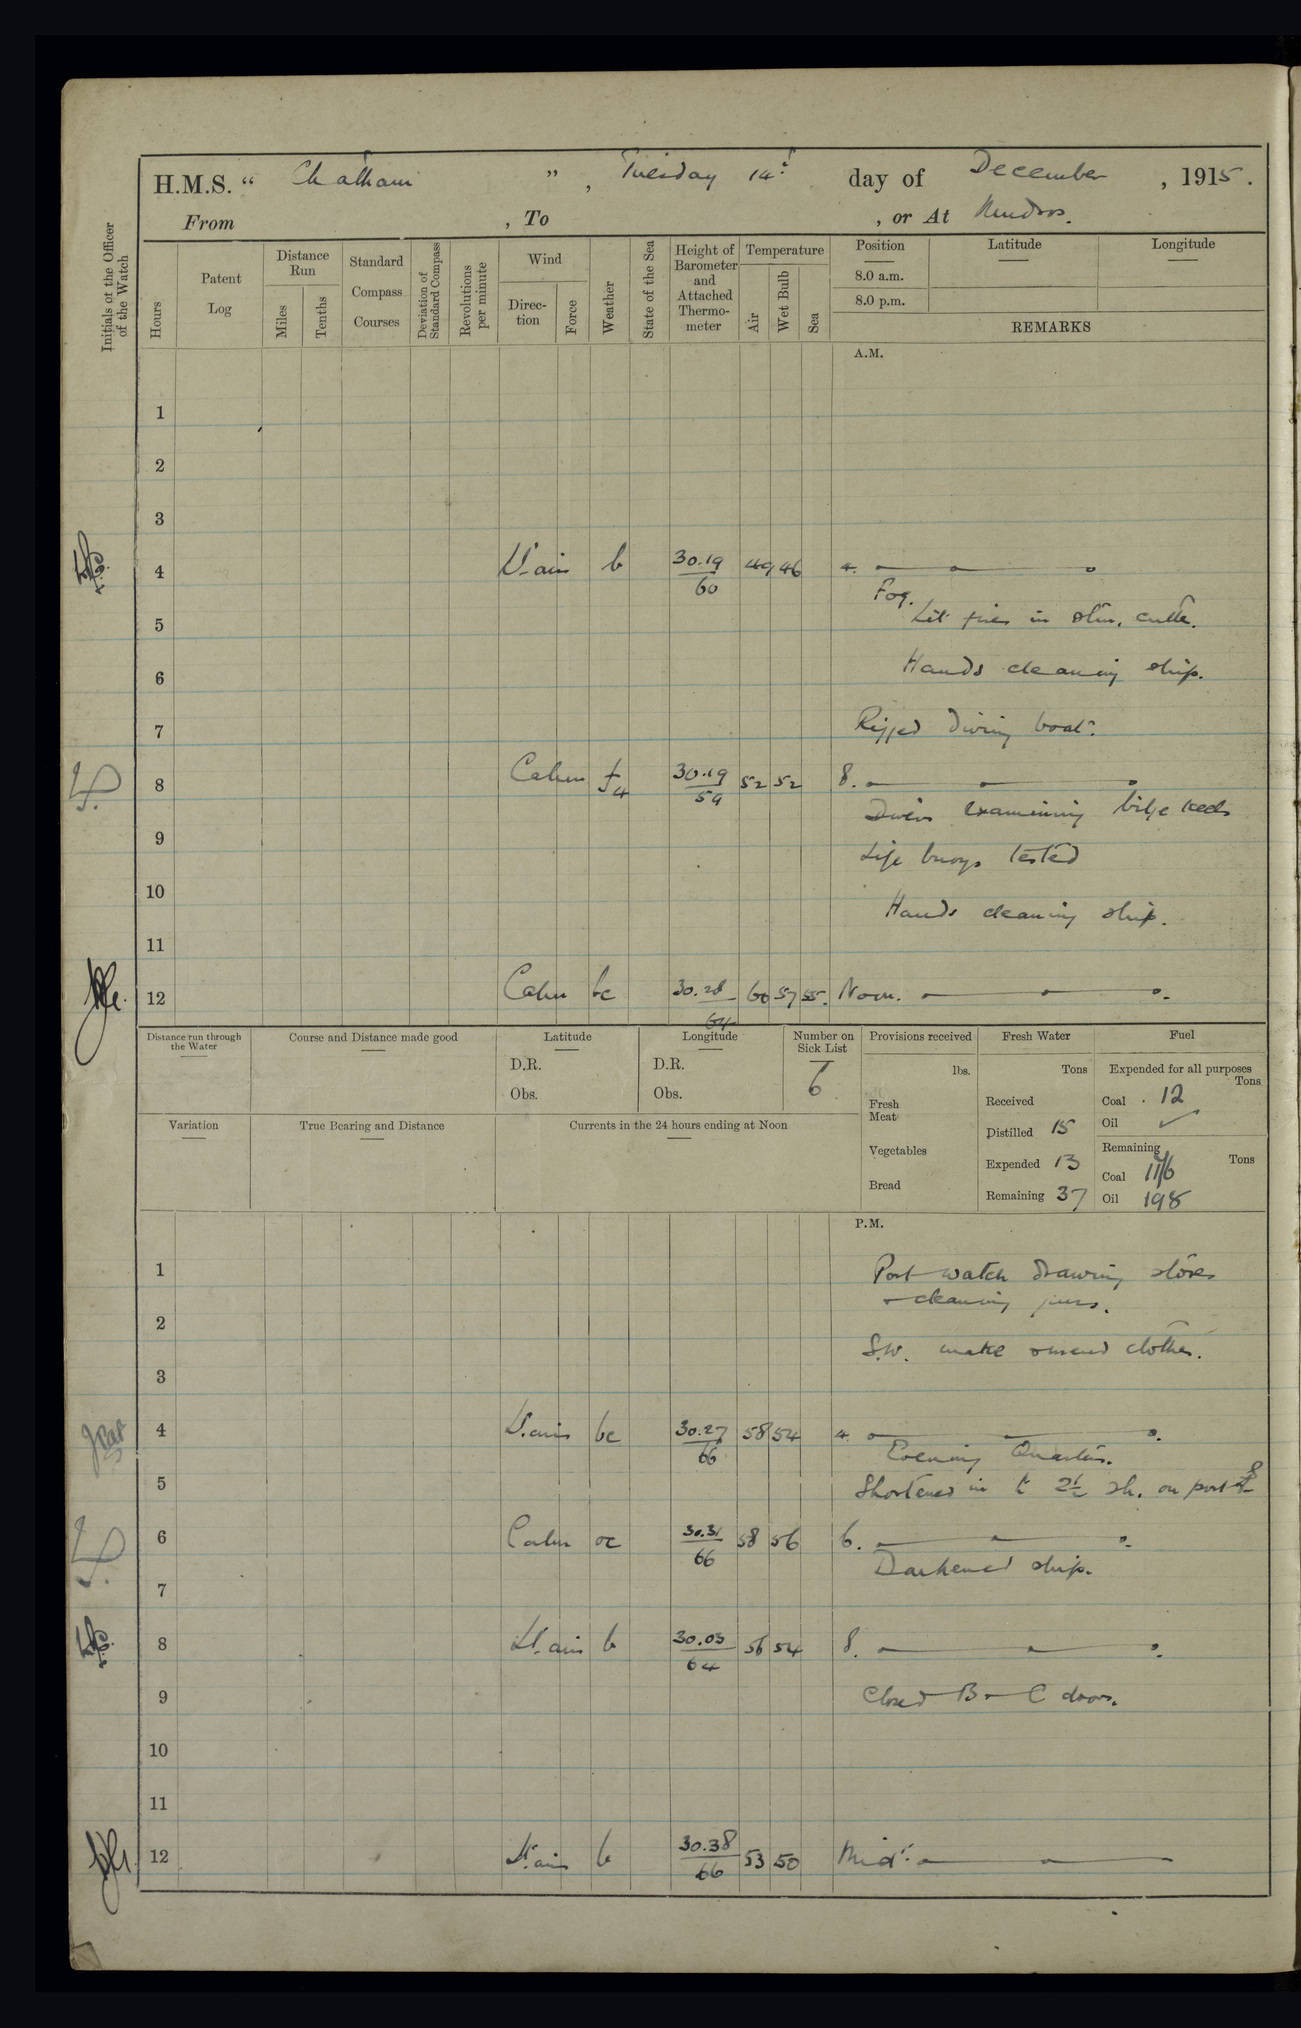 H.M.S. “ Chatham ” , Tuesday 14th day of December , 1915.
From , To , or At Mudros.
Initials of the Officer of the Watch
Hours
Patent Log
Distance Run
Miles
Tenths
Standard Compass Courses
Deviation of Standard Compass
Revolutions per minute
Wind
Direction
Force
Weather
State of the Sea
Height of Barometer and Attached Thermometer
Temperature
Air
Wet Bulb
Sea
Position Latitude Longitude
8.0 a.m.
8.0 p.m.
REMARKS
A.M.
1
2
3
4 Lt. airs b 30.19/60 49 46 4.
Fog.
5 Lit fires in stm. cutter.
6 Hands cleaning ship.
7 Rigged diving boat.
8 Calm f4 30.19/59 52 52 8.
9 Divers examining bilge keels
Life buoys tested
10 Hands cleaning ship.
11
12 Calm bc 30.28/64 60 57 55. Noon.
Distance run through the Water
Course and Distance made good
Latitude
D.R.
Obs.
Longitude
D.R.
Obs.
Number on Sick List
6
Provisions received
lbs.
Fresh Meat
Vegetables
Bread
Fresh Water
Tons
Received
Distilled 15
Expended 13
Remaining 37
Fuel
Expended for all purposes
Tons
Coal . 12
Oil ✓
Remaining
Tons
Coal
Oil 198
Variation
True Bearing and Distance
Currents in the 24 hours ending at Noon
P.M.
1 Port watch drawing stores
2 + cleaning guns.
S.W. make + mend clothes.
3
4 Lt. airs bc 30.27/66 58 54 4.
Evening Quarters.
5 Shortened in to 2½ sh. on port
6 Calm oc 30.31/66 58 56 6.
Darkened ship.
7
8 Lt. airs b 30.03/64 56 54 8.
9 Closed B + C doors.
10
11
12 Lt. airs b 30.38/66 53 50 Midt.